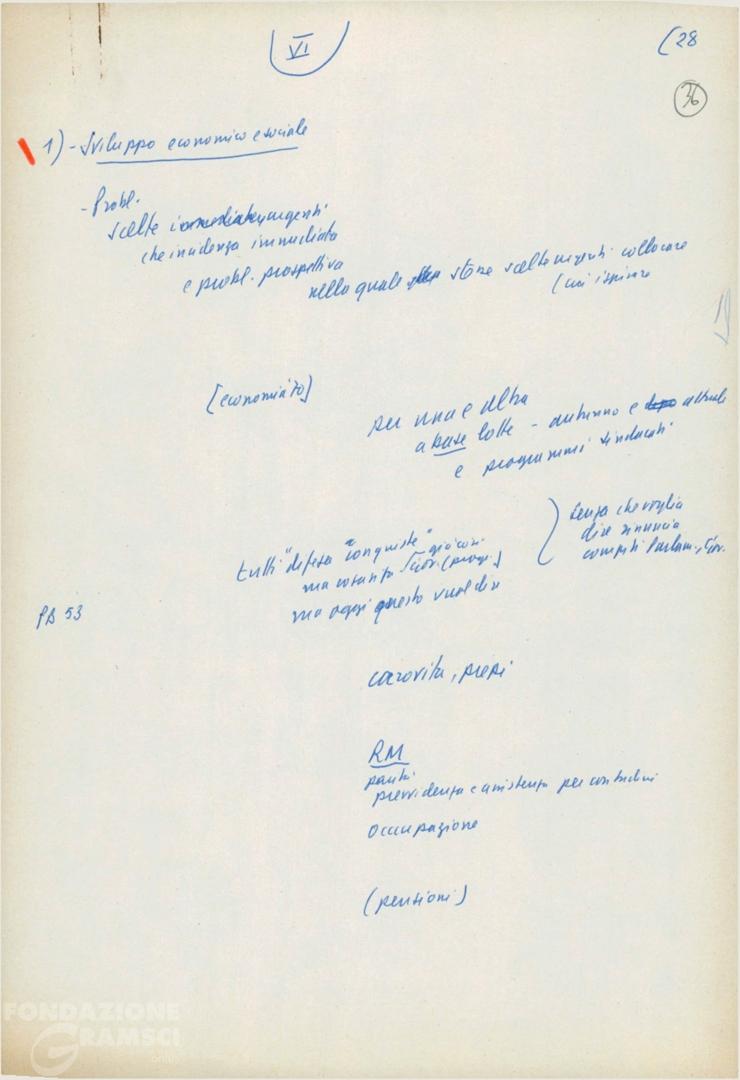 VI
(28
36
1) - Sviluppo economico e sociale
- Probl.
scelte immediate, urgenti
che incidenza immediata
e probl. prospettiva
nella quale stesse scelte urgenti collocare
(cui ispirare
[economia 70]
per una e altra
a base lotte - autunno e attuale
e programmi sindacati
tutti "difesa conquiste"
già così
ma
ma oggi questo vuol dire
senza che voglia
dire rinuncia
compiti Parlam., Gov.
PB 53
carovita, prezzi
RM
previdenza e assistenza per contadini
occupazione
(pensioni)
FONDAZIONE
GRAMSCI